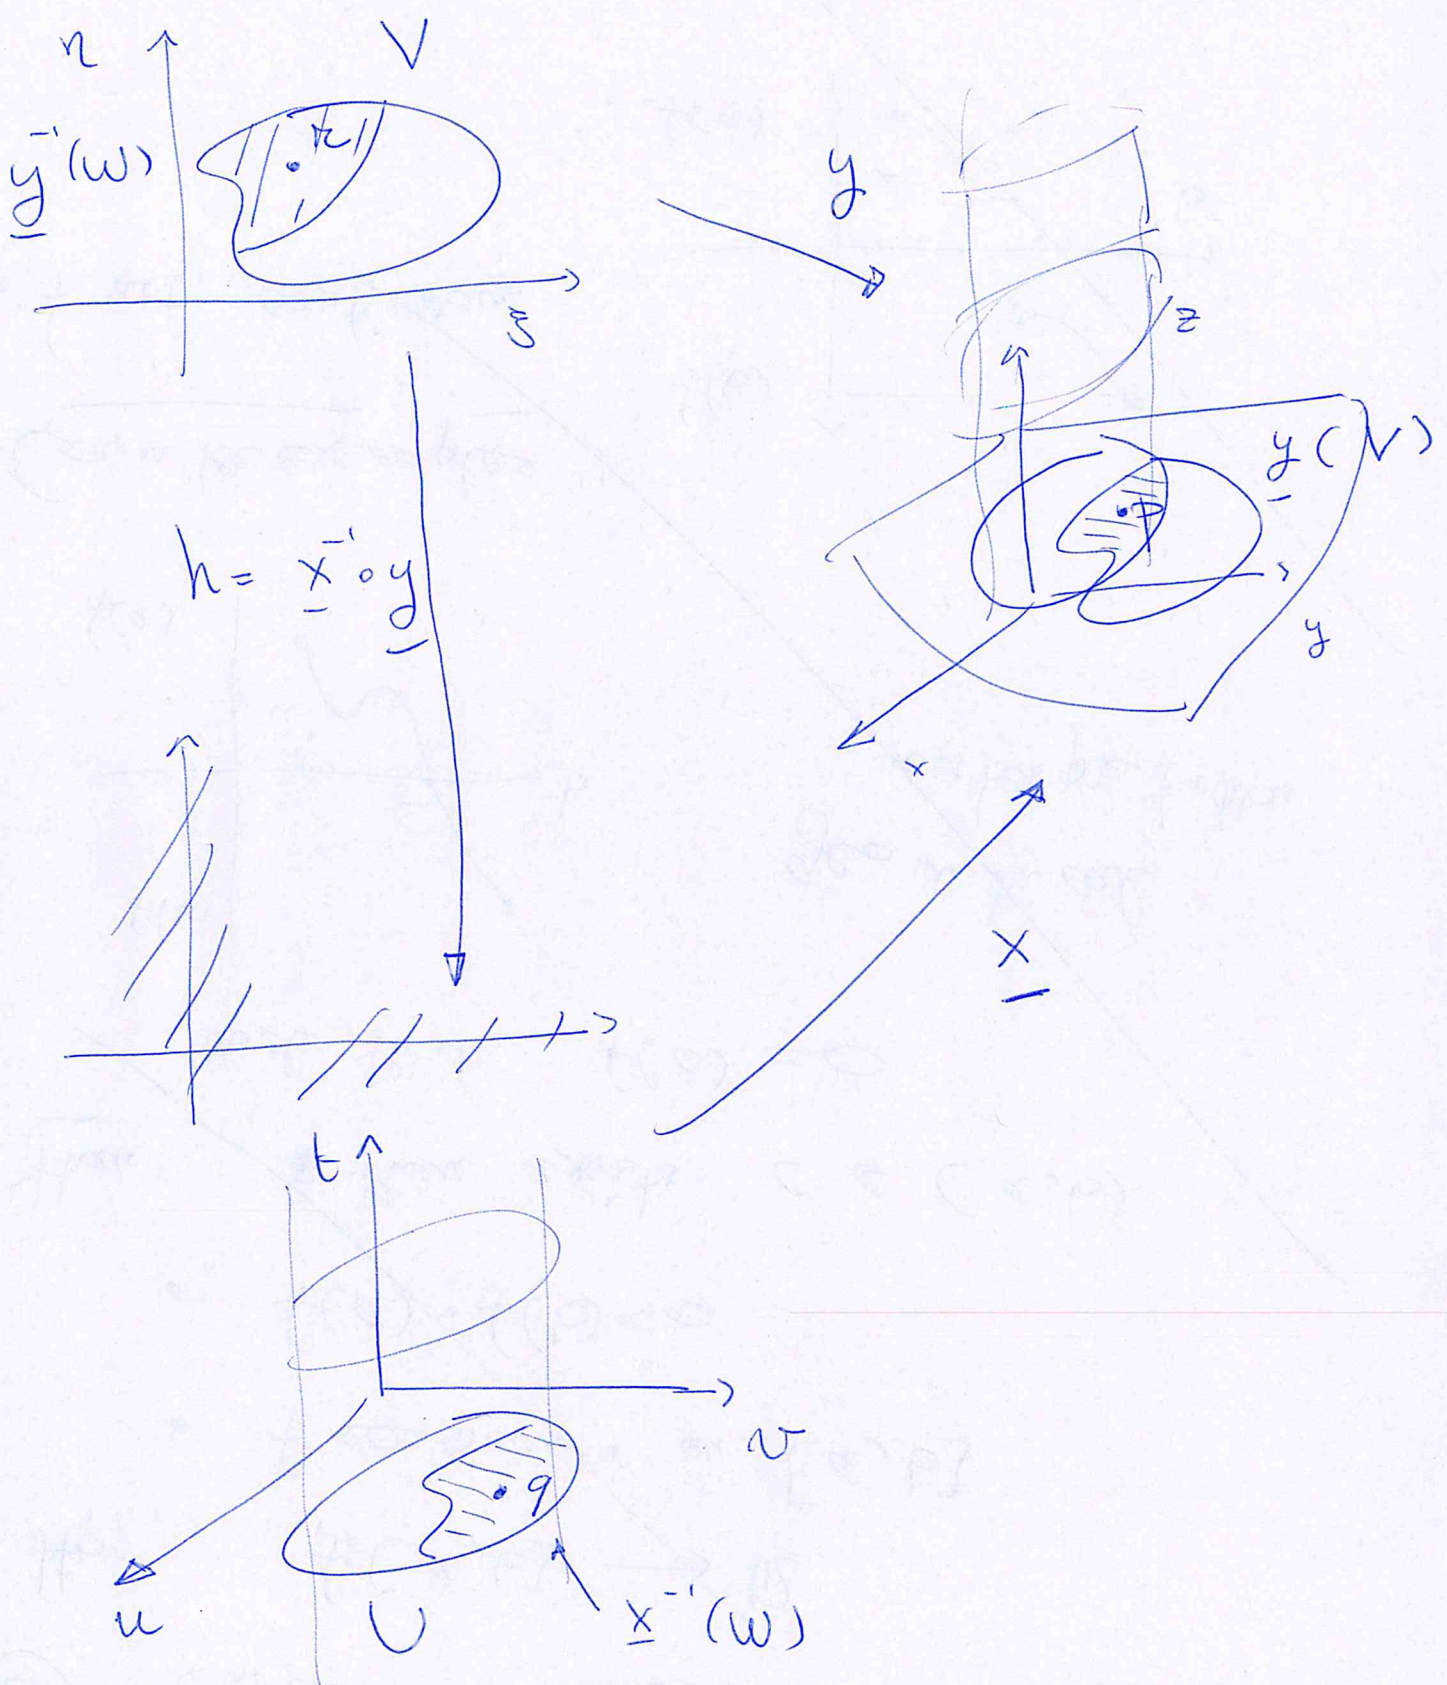 η V
y⁻¹(W) r
ξ
y
z
y(V)
p
y
x
h = x⁻¹∘y
x
t
v
q
u U x⁻¹(W)